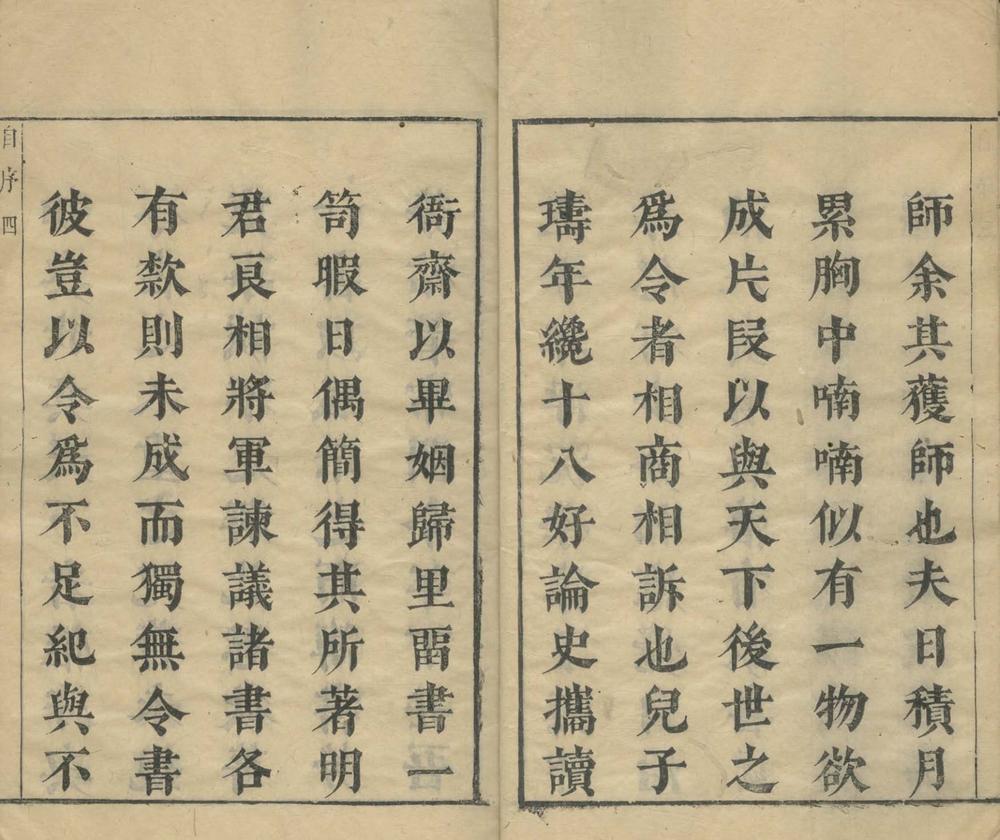 師余其獲師也夫日積月
累胸中喃喃似有一物欲
成片段以與天下後世之
爲令者相商相訴也兒子
璹年纔十八好論史攜讀
衙齋以畢姻歸里畱書一
笥暇日偶簡得其所著明
君良相將軍諫議諸書各
有欵則未成而獨無令書
彼豈以令爲不足紀與不
自序 四